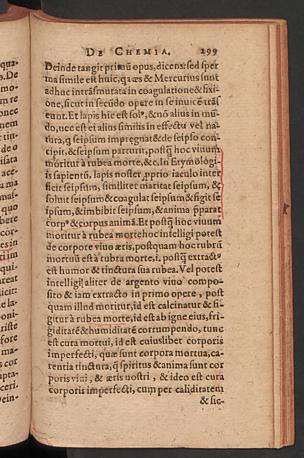 DE CHEMIA. 299
Deinde tangit primũ opus, dicens: sed sper
ma simile est huic, quia æs & Mercurius sunt
adhuc intrāsmutata in coagulatione & fixi-
one, sicut in secũdo opere in se inuicẽ trāsẽ
unt. Et lapis hic est sol⁹, & nõ alius in mũ-
do, nec est ei alius similis in effectu vel na-
tura, q seipsum impregnat & de seipso con-
cipit, & seipsum parturit, postq̃ hoc viuum
moritur à rubea morte, &c. In Etymologi-
is sapientũ, lapis noster, pprio iaculo inter
ficit seipsum, similiter maritat seipsum, &
soluit seipsum & coagulat seipsum & figit se
ipsum, & imbibit seipsum, & anima pparat
corp⁹ & corpus animã. Et postq̃ hoc viuum
moritur à rubea morte hoc intelligi potest
de corpore viuo æris, postquam hoc rubrũ
mortuũ est à rubra morte, i. postq̃ extract⁹
est humor & tinctura sua rubea. Vel potest
intelligi aliter de argento viuo compo-
sito & iam extracto in primo opere, post
quam illud moritur, id est calcinatur & fi-
gitur à rubea morte, id est ab igne eius, fri-
giditatẽ & humiditatẽ corrumpendo, tunc
est cura mortui, id est cuiuslibet corporis
imperfecti, quæ sunt corpora mortua, ca-
rentia tinctura, q̃ spiritus & anima sunt cor
poris viui, & æris nostri, & ideo est cura
corporis imperfecti, cum per caliditatem
& sic-